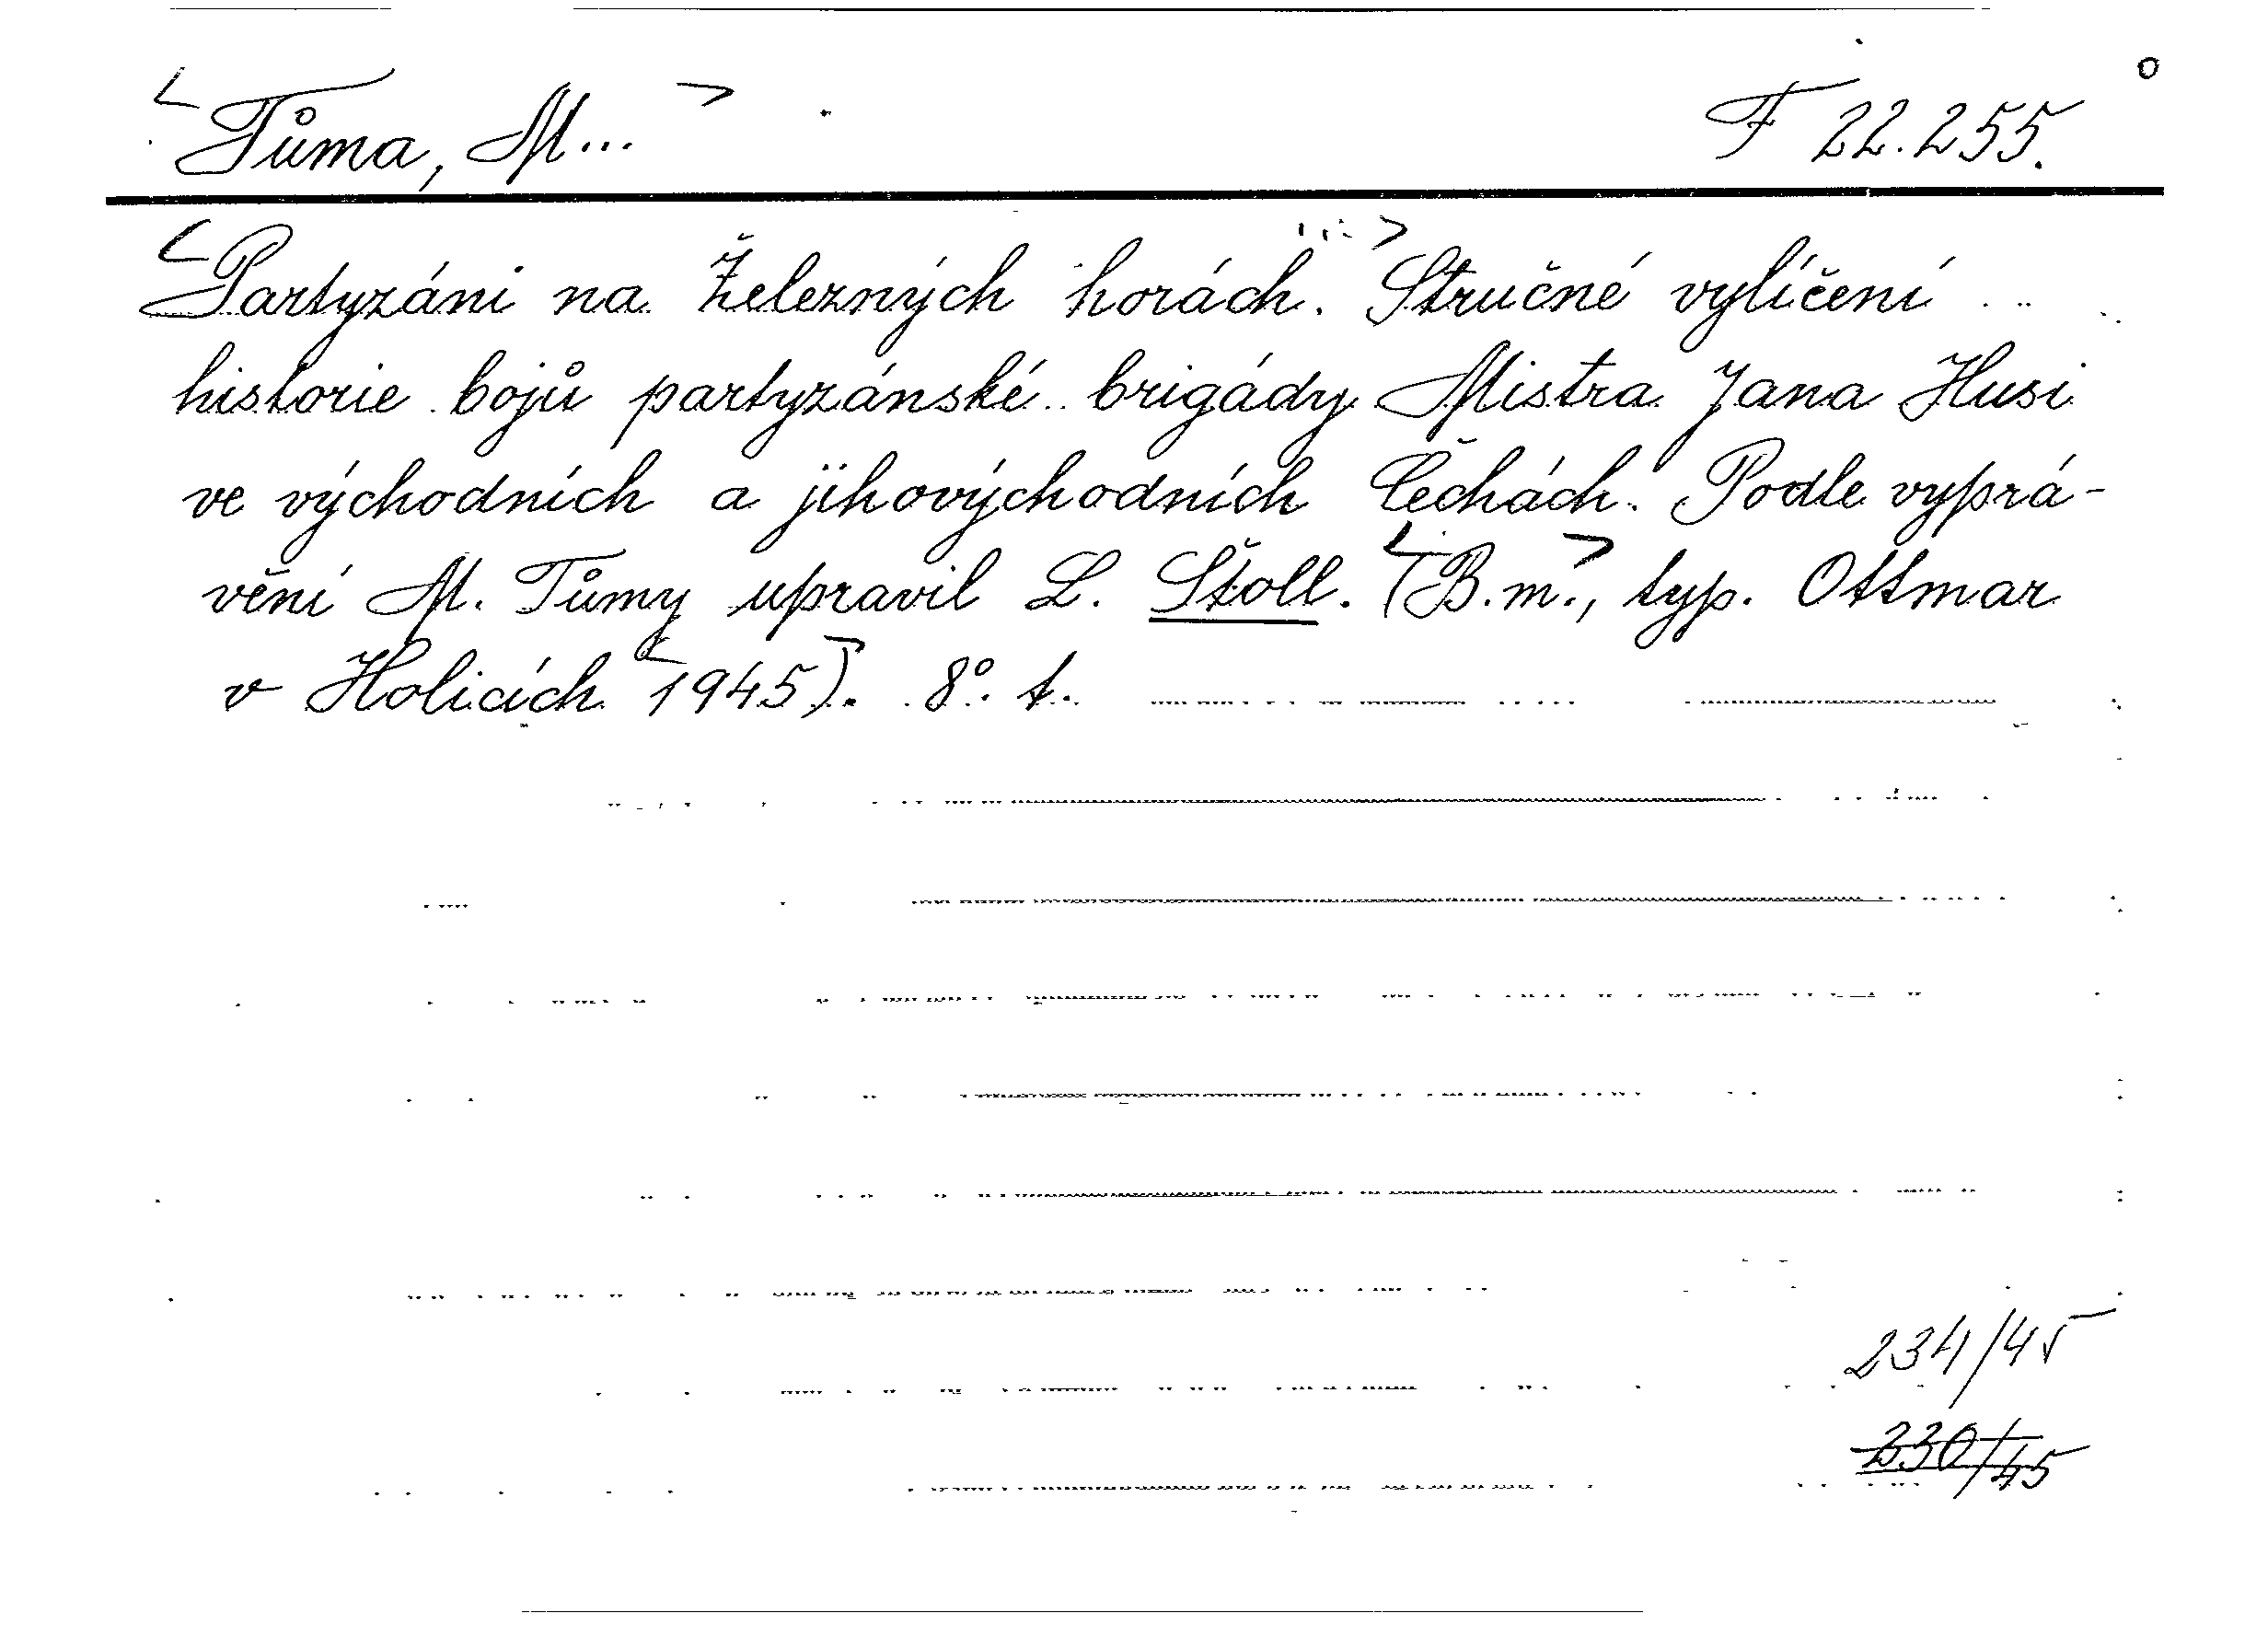 Tůma, M... F 22.255.
Partyzáni na Železných horách. Stručné vylíčení
historie bojů partyzánské brigády Mistra Jana Husi
ve východních a jihovýchodních Čechách. Podle vyprá-
vění M. Tůmy upravil L. Štoll. (B.m., typ. Ottmar
v Holicích 1945). 8°. t.
234/45
230/45